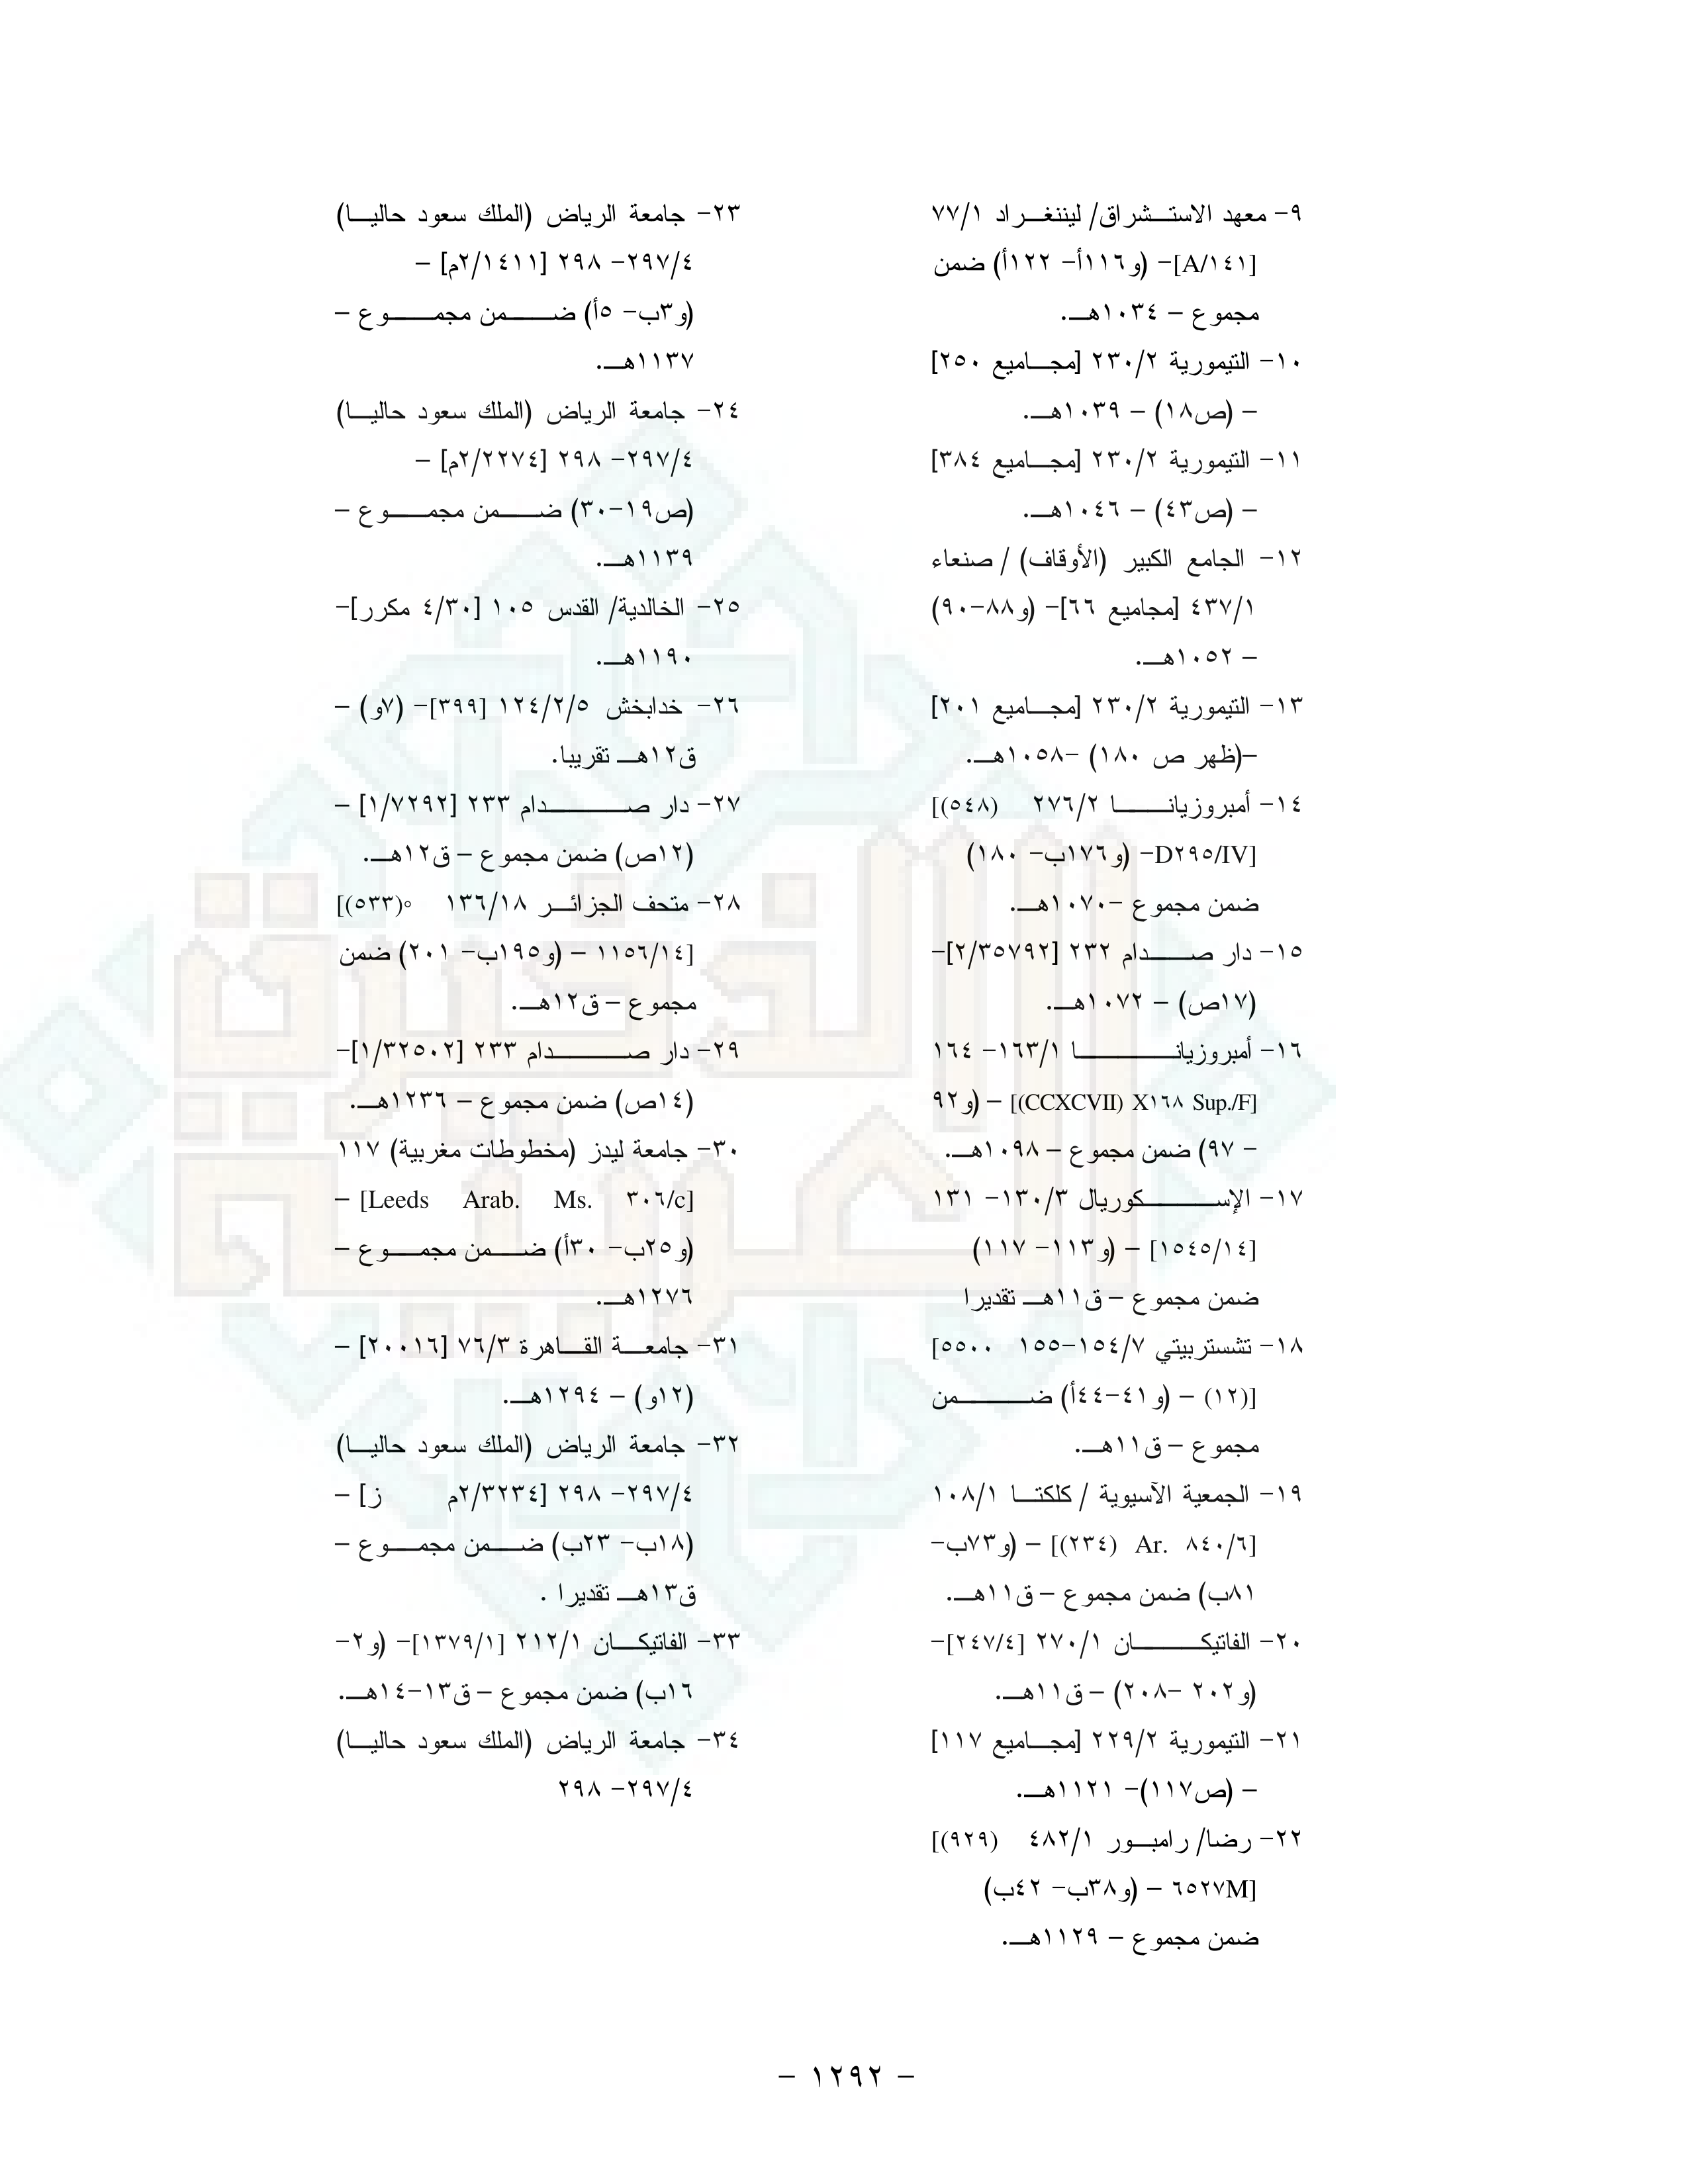 ٩- معهد الاستشراق/ ليننغراد ٧٧/١
[A/١٤١]- (و١١٦أ- ١٢٢أ) ضمن
مجموع – ١٠٣٤هـ.
١٠- التيمورية ٢٣٠/٢ [مجاميع ٢٥٠]
– (ص١٨) – ١٠٣٩هـ.
١١- التيمورية ٢٣٠/٢ [مجاميع ٣٨٤]
– (ص٤٣) – ١٠٤٦هـ.
١٢- الجامع الكبير (الأوقاف) / صنعاء
٤٣٧/١ [مجاميع ٦٦]- (و٨٨-٩٠)
– ١٠٥٢هـ.
١٣- التيمورية ٢٣٠/٢ [مجاميع ٢٠١]
–(ظهر ص ١٨٠) -١٠٥٨هـ.
١٤- أمبروزيانا ٢٧٦/٢ (٥٤٨)]
[D٢٩٥/IV- (و١٧٦ب- ١٨٠)
ضمن مجموع -١٠٧٠هـ.
١٥- دار صدام ٢٣٢ [٢/٣٥٧٩٢]-
(١٧ص) – ١٠٧٢هـ.
١٦- أمبروزيانا ١٦٣/١- ١٦٤
[(CCXCVII) X١٦٨ Sup./F] – (و٩٢
- ٩٧) ضمن مجموع – ١٠٩٨هـ.
١٧- الإسكوريال ١٣٠/٣- ١٣١
[١٥٤٥/١٤] – (و١١٣- ١١٧)
ضمن مجموع – ق١١هـ تقديرا
١٨- تشستربيتي ١٥٤/٧-١٥٥ ٥٥٠٠]
[(١٢) – (و٤١-٤٤أ) ضمن
مجموع – ق١١هـ.
١٩- الجمعية الآسيوية / كلكتا ١٠٨/١
[(٢٣٤) Ar. ٨٤٠/٦] – (و٧٣ب-
٨١ب) ضمن مجموع – ق١١هـ.
٢٠- الفاتيكان ٢٧٠/١ [٢٤٧/٤]-
(و٢٠٢ -٢٠٨) – ق١١هـ.
٢١- التيمورية ٢٢٩/٢ [مجاميع ١١٧]
– (ص١١٧)- ١١٢١هـ.
٢٢- رضا/ رامبور ٤٨٢/١ (٩٢٩)]
[٦٥٢٧M – (و٣٨ب- ٤٢ب)
ضمن مجموع – ١١٢٩هـ.
٢٣- جامعة الرياض (الملك سعود حاليا)
٢٩٧/٤- ٢٩٨ [٢/١٤١١م] –
(و٣ب- ٥أ) ضمن مجموع –
١١٣٧هـ.
٢٤- جامعة الرياض (الملك سعود حاليا)
٢٩٧/٤- ٢٩٨ [٢/٢٢٧٤م] –
(ص١٩-٣٠) ضمن مجموع –
١١٣٩هـ.
٢٥- الخالدية/ القدس ١٠٥ [٤/٣٠ مكرر]-
١١٩٠هـ.
٢٦- خدابخش ١٢٤/٢/٥ [٣٩٩]- (٧و) –
ق١٢هـ تقريبا.
٢٧- دار صدام ٢٣٣ [١/٧٢٩٢] –
(١٢ص) ضمن مجموع – ق١٢هـ.
٢٨- متحف الجزائر ١٣٦/١٨ °(٥٣٣)]
[١١٥٦/١٤ – (و١٩٥ب- ٢٠١) ضمن
مجموع – ق١٢هـ.
٢٩- دار صدام ٢٣٣ [١/٣٢٥٠٢]-
(١٤ص) ضمن مجموع – ١٢٣٦هـ.
٣٠- جامعة ليدز (مخطوطات مغربية) ١١٧
[Leeds Arab. Ms. ٣٠٦/c] –
(و٢٥ب- ٣٠أ) ضمن مجموع –
١٢٧٦هـ.
٣١- جامعة القاهرة ٧٦/٣ [٢٠٠١٦] –
(١٢و) – ١٢٩٤هـ.
٣٢- جامعة الرياض (الملك سعود حاليا)
٢٩٧/٤- ٢٩٨ [٢/٣٢٣٤م ز] –
(١٨ب- ٢٣ب) ضمن مجموع –
ق١٣هـ تقديرا .
٣٣- الفاتيكان ٢١٢/١ [١٣٧٩/١]- (و٢-
١٦ب) ضمن مجموع – ق١٣-١٤هـ.
٣٤- جامعة الرياض (الملك سعود حاليا)
٢٩٧/٤- ٢٩٨
الذخيرة
العربية
- ١٢٩٢ -